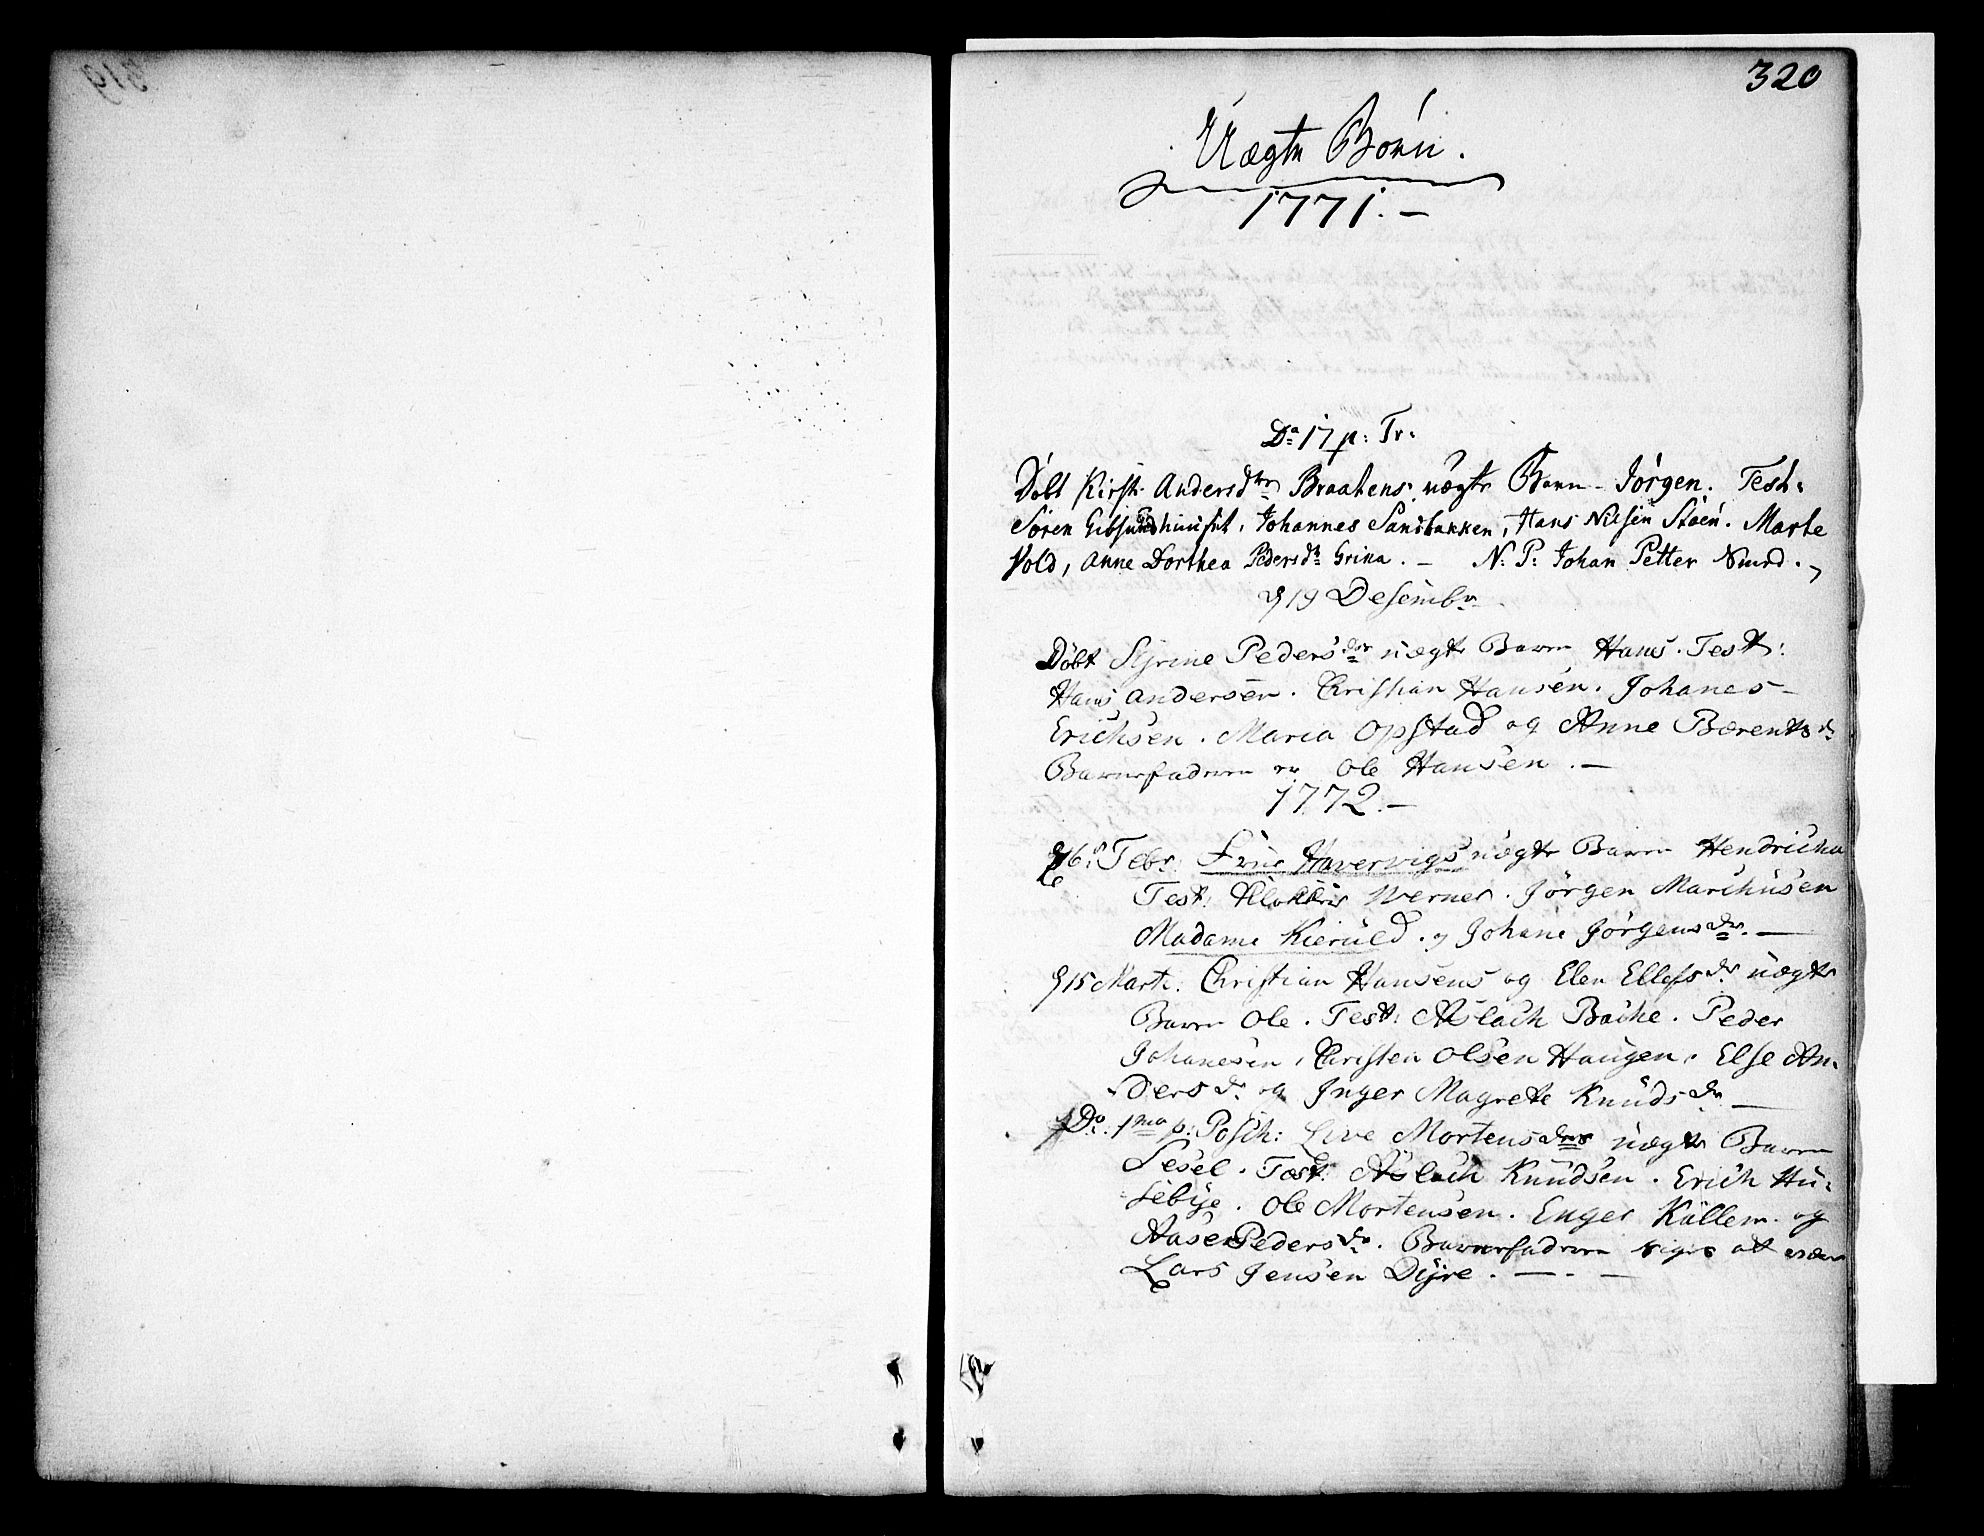 320
Uægte Börn.
1771.-
Da 17 p: Tr:
Döbt Kirst. Andersdtr Braatens uægte Barn - Jörgen. Test:
Sören, Johannes Sandbakken, Hans Nilsen Stöen. Marte
Vold, Anne Dorthea Pedersdr Grina. - N: P: Johan Petter
19 Desembr
Döbt Syrine Pedersdtr uægte Barn Hans. Test:
Hans Andersen. Christian Hansen. Johanes
Erichsen. Maria Opstad og Anne Bærentsdr
Barnefaderen er Ole Hansen. -
1772. -
16 Febr: Haverwigs uægte Barn Hendricha
Test: Werner. Jörgen Marchusen
Madame Kieruld. og Johane Jörgensdr. -
15 Marti. Christian Hansens og Elen Ellefsdr uægte
Barn Ole. Test: Aslach Bache. Peder
Johanesen, Christen Olsen Haugen, Else An-
dersdr. og Inger Magrete Knudsdr -
Do: 1ma p: Pasch: Live Mortensdrs uægte Barn
Sesel. Test: Aslach Knudsen. Erich Hu-
sebye. Ole Mortensen. Enger Källem. og
Aase Pedersdr. Barnefaderen siges at være
Lars Jensen Dyre. - . -